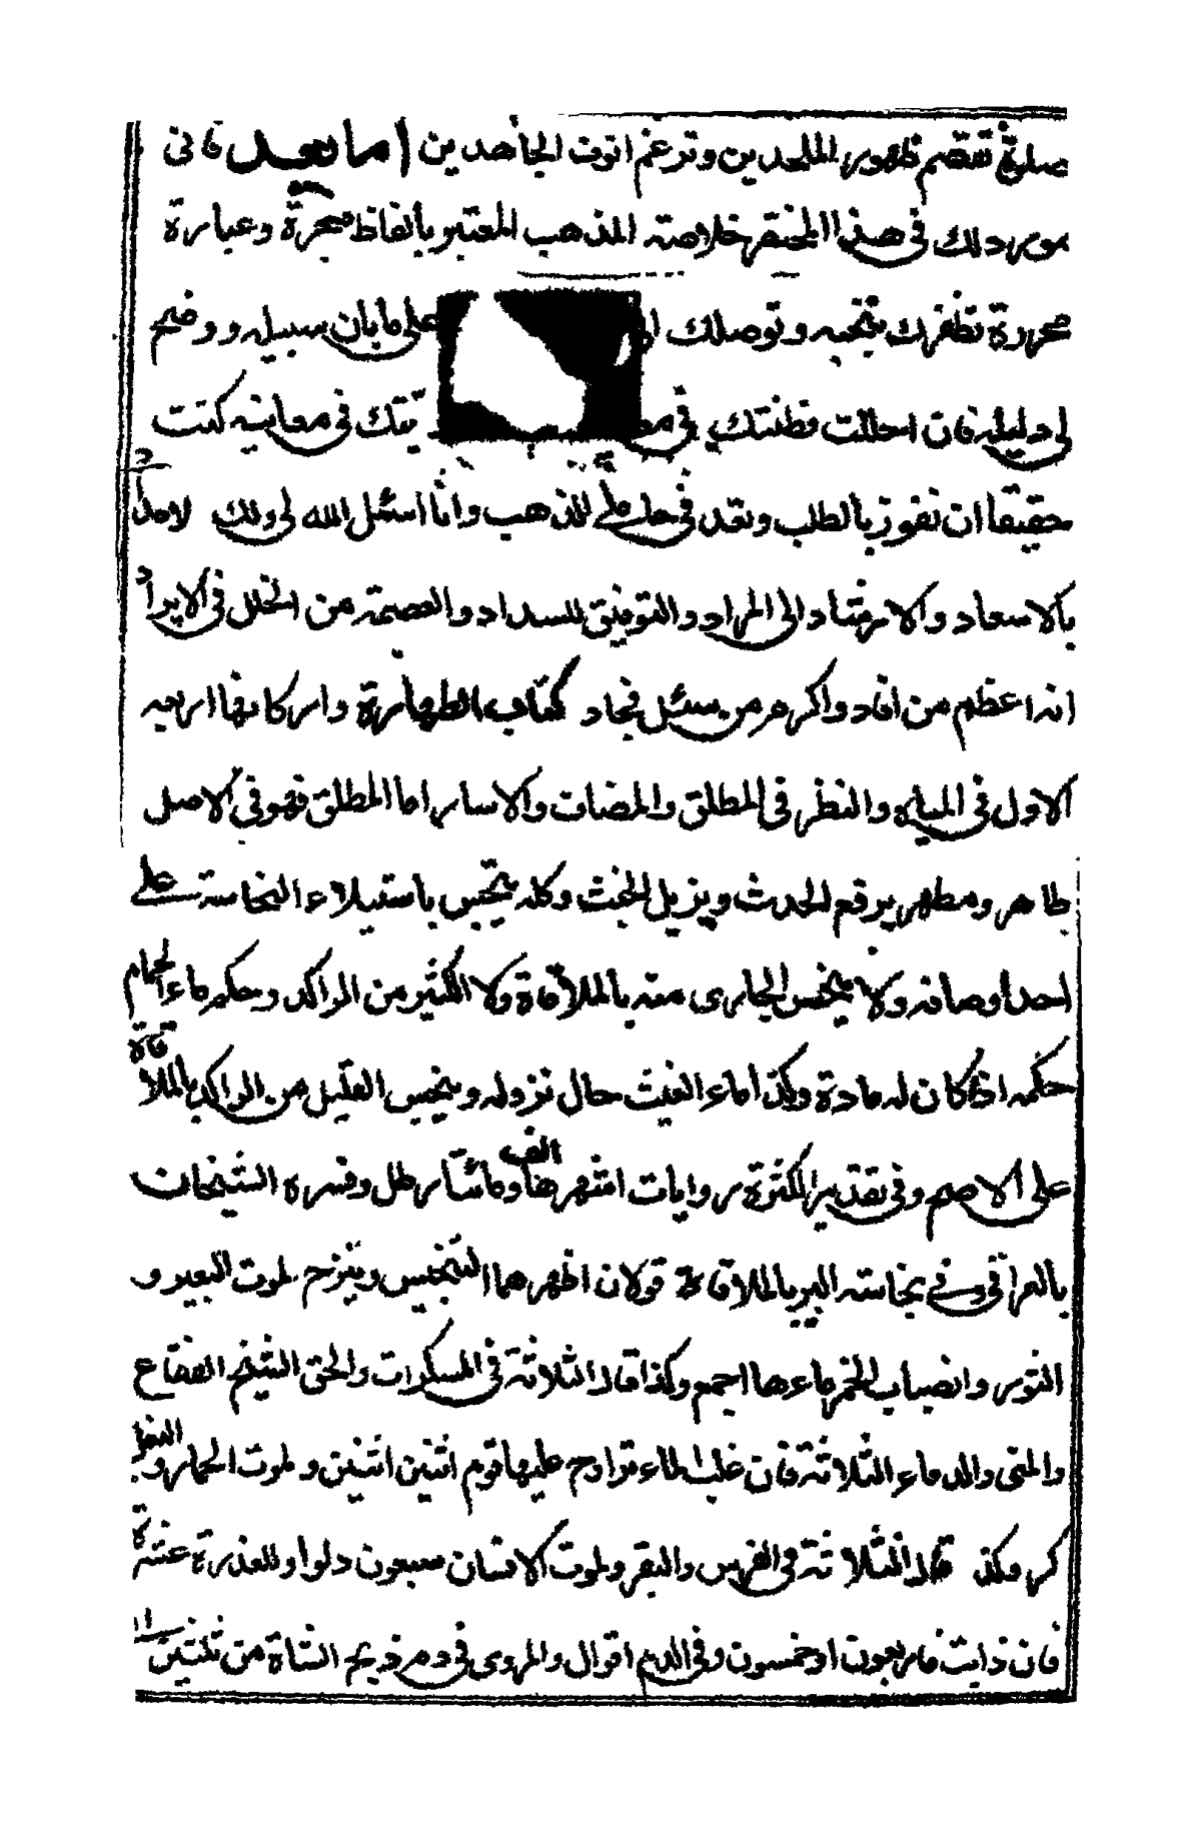 صلوة تقصم ظهور الملحدين وترغم انوف الجاحدين اما بعد فانى
مورد لك فى هذا المختصر خلاصة المذهب المعتبر بألفاظ محبرة وعبارة
محررة تظفرك بنخبه وتوصلك الى على ما بان سبيله ووضح
لى دليله فان احللت فطنتك فى يتك فى معانيه كنت
حقيقا ان تفوز بالطلب وتعد فى حاملى المذهب وانا اسئل الله لى ولك لامداد
بالاسعاد والارشاد الى المراد والتوفيق للسداد والعصمة من الخلل فى الايراد
انه اعظم من افاد واكرم من سئل فجاد كتاب الطهارة واركانها اربعه
الاول فى المياه والنظر فى المطلق والمضاف والاسار اما المطلق فهو فى الاصل
طاهر ومطهر يرفع الحدث ويزيل الخبث وكله ينجس باستيلاء النجاسة على
احد اوصافه ولا ينجس الجارى منه بالملاقاة ولا الكثير من الراكد وحكم ماء الحمام
حكمه اذا كان له مادة وكذا ماء الغيث حال نزوله وينجس القليل من الراكد بالملاقاة
على الاصح وفى تقدير الكثرة روايات اشهرها الف ومأتا رطل وفسره الشيخان
بالعراقى وفى نجاسة البير بالملاقاة قولان اظهرهما التنجيس وينزح لموت البعير و
الثور وانصباب الخمر ماءها اجمع وكذا قال الثلاثة فى المسكرات والحق الشيخ الفقاع
والمنى والدماء الثلاثة فان غلب الماء تراوح عليها قوم اثنين اثنين ولموت الحمار والبغل
كر وكذا قال الثلاثة فى الفرس والبقر ولموت الانسان سبعون دلوا وللعذرة عشرة
فان ذابت فاربعون او خمسون وفى الدم اقوال والمروى فى دم ذبح الشاة من ثلثين الى